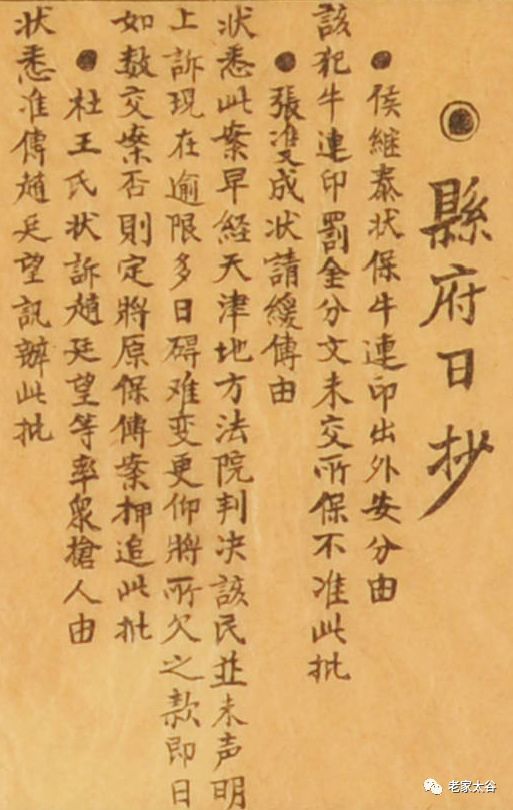 ◉縣府日抄
●侯継泰状保牛連印出外安分由
該犯牛連印罰金分文未交所保不准此批
●張双成状請緩傳由
状悉此案早経天津地方法院判决該民並未声明
上訴現在逾限多日碍难变更仰將所欠之款即日
如数交案否則定將原保傳案押追此批
●杜王氏状訴趙廷望等率衆搶人由
状悉准傳趙廷望訊辦此批
老家太谷